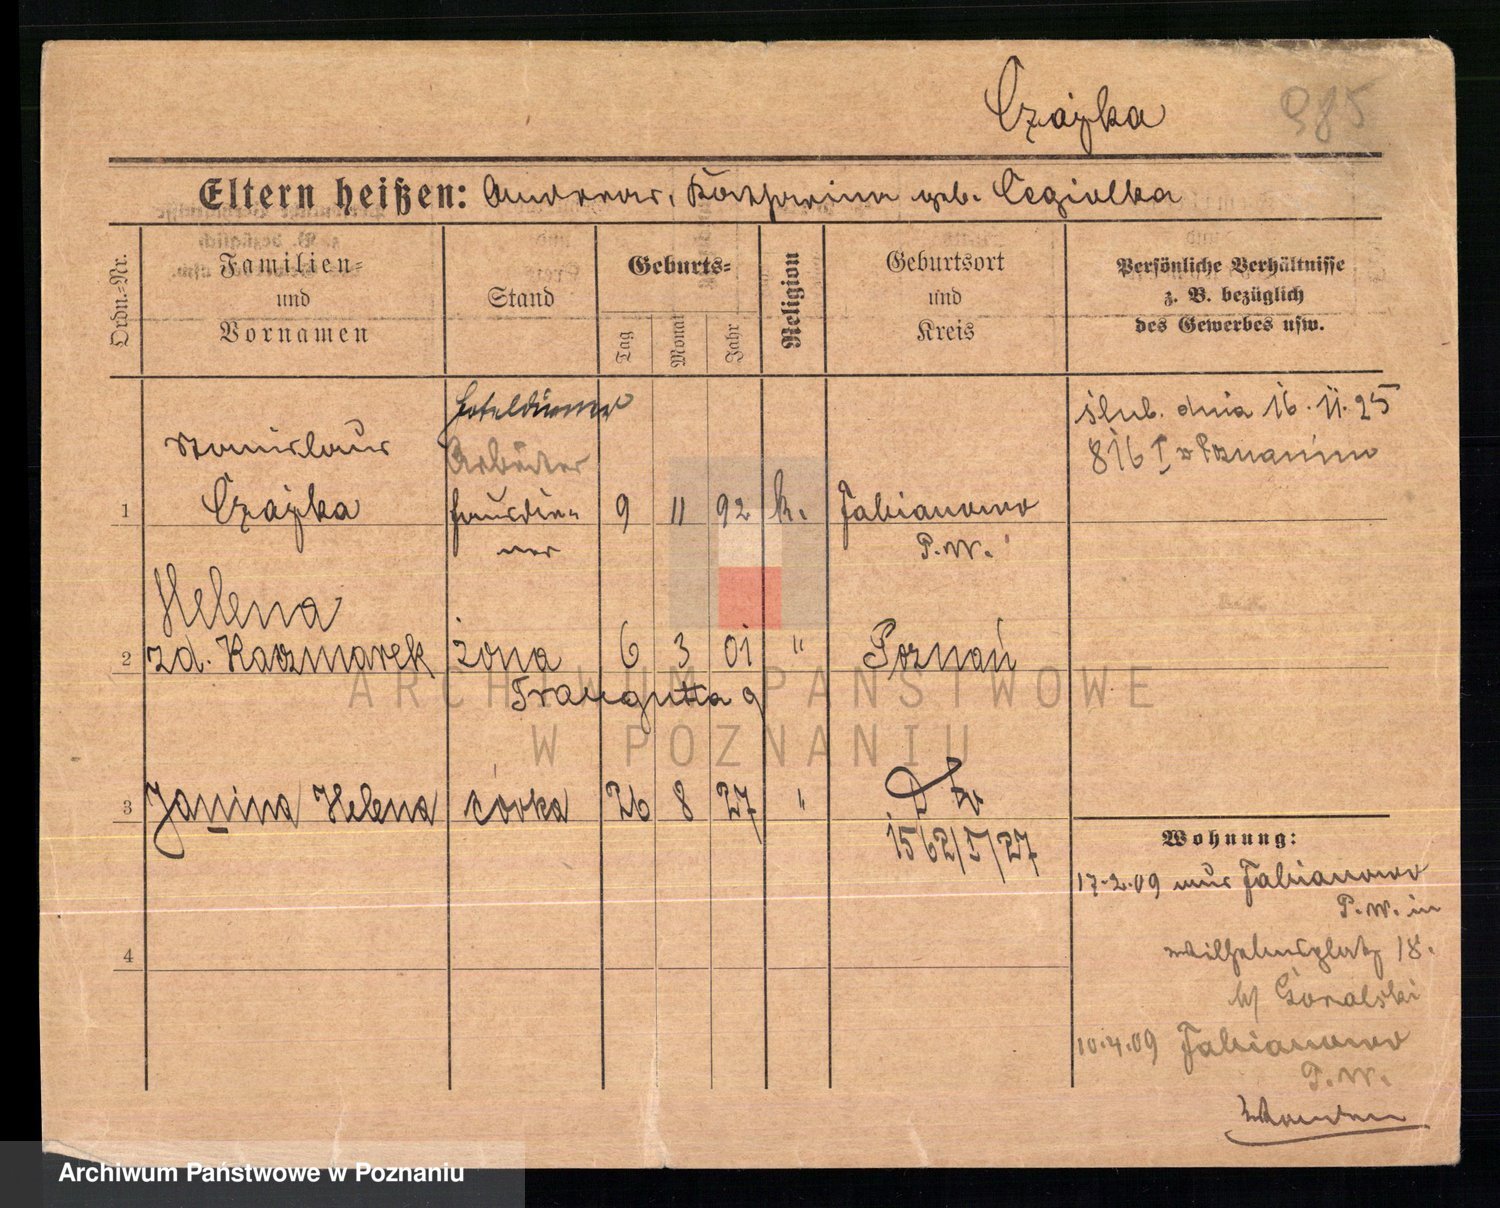 Czajka 985
Eltern heißen: Andreas, Katharina geb. Cegiolka
Ordn.-Nr.
Familien-
und
Vornamen
Stand
Geburts-
Tag
Monat
Jahr
Religion
Geburtsort
und
Kreis
Persönliche Verhältnisse
z. B. bezüglich
des Gewerbes usw.
Hoteldiener
Stanislaus
Arbeiter
1 Czajka Hausdie- 9 11 92 k. Fabianowo
ner P.W.
ślub. dnia 16.11.25
816 I w Poznaniu
Helena
2 zd. Kaczmarek żona 6 3 01 " Poznań
Traugutta 9
3 Janina Helena córka 26 8 27 "
1562/I/27
4
Wohnung:
17.2.09 aus Fabianowo
P.W. in
Wilhelmsplatz 18.
b/ Goralski
10.4.09 Fabianowo
P.W.
ARCHIWUM PAŃSTWOWE
W POZNANIU
Archiwum Państwowe w Poznaniu